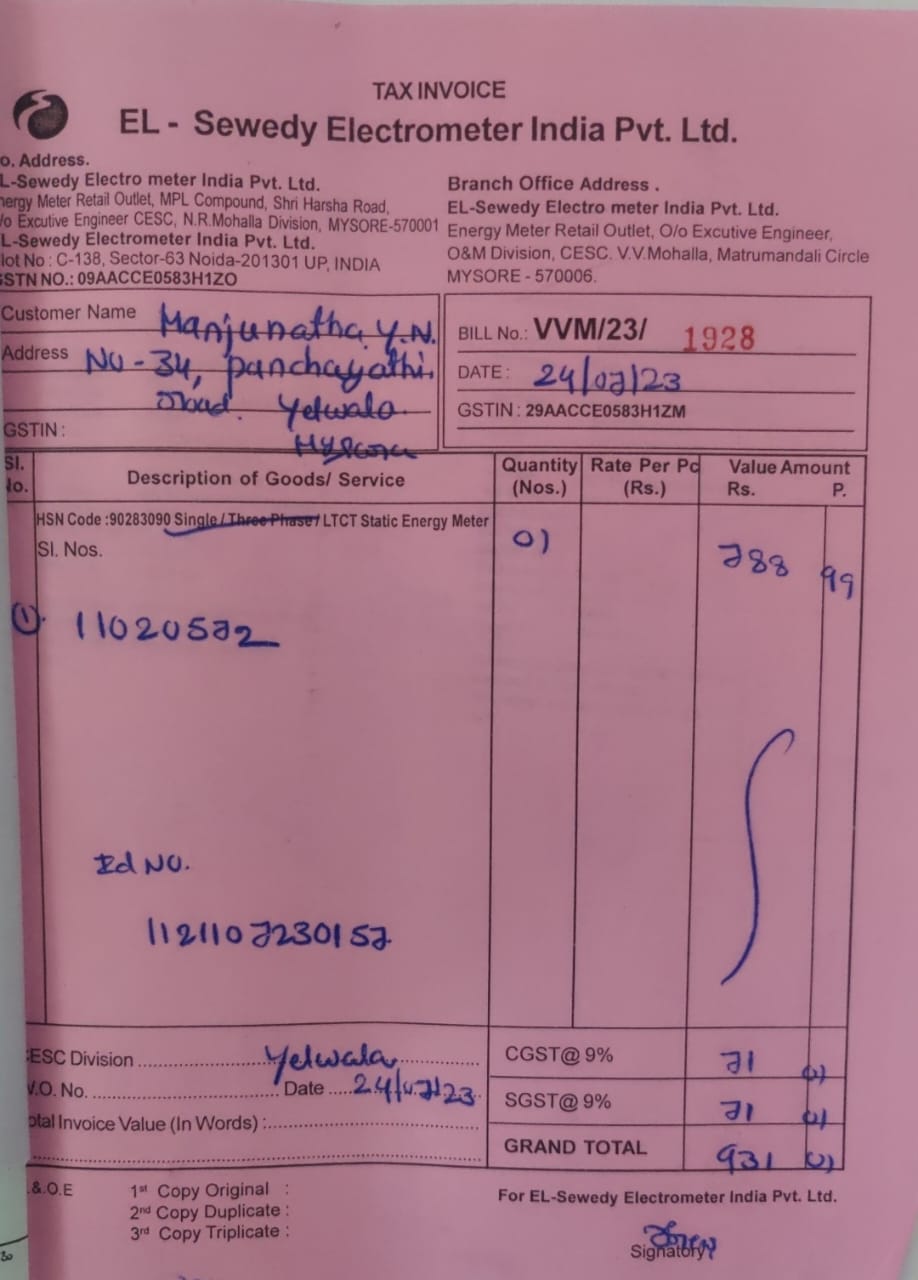 TAX INVOICE
EL - Sewedy Electrometer India Pvt. Ltd.
o. Address.
L-Sewedy Electro meter India Pvt. Ltd.
nergy Meter Retail Outlet, MPL Compound, Shri Harsha Road,
/o Excutive Engineer CESC, N.R.Mohalla Division, MYSORE-570001
L-Sewedy Electrometer India Pvt. Ltd.
lot No : C-138, Sector-63 Noida-201301 UP, INDIA
GSTN NO.: 09AACCE0583H1ZO
Branch Office Address .
EL-Sewedy Electro meter India Pvt. Ltd.
Energy Meter Retail Outlet, O/o Excutive Engineer,
O&M Division, CESC. V.V.Mohalla, Matrumandali Circle
MYSORE - 570006.
Customer Name Manjunatha Y.N.
Address NO-34, Panchayathi
Road. Yelwala
Mysore
GSTIN :
BILL No.: VVM/23/ 1928
DATE : 24/07/23
GSTIN : 29AACCE0583H1ZM
Sl. No. Description of Goods/ Service Quantity (Nos.) Rate Per Pc (Rs.) Value Amount Rs. P.
HSN Code :90283090 Single / Three Phase / LTCT Static Energy Meter
Sl. Nos. 01 788 99
① 11020572
Id NO.
1121107230157
CESC Division .......... Yelwala
W.O. No. .......... Date ..... 24/07/23
otal Invoice Value (In Words) :
CGST@ 9% 71 01
SGST@ 9% 71 01
GRAND TOTAL 931 01
.&.O.E
1st Copy Original :
2nd Copy Duplicate :
3rd Copy Triplicate :
For EL-Sewedy Electrometer India Pvt. Ltd.
Signatory